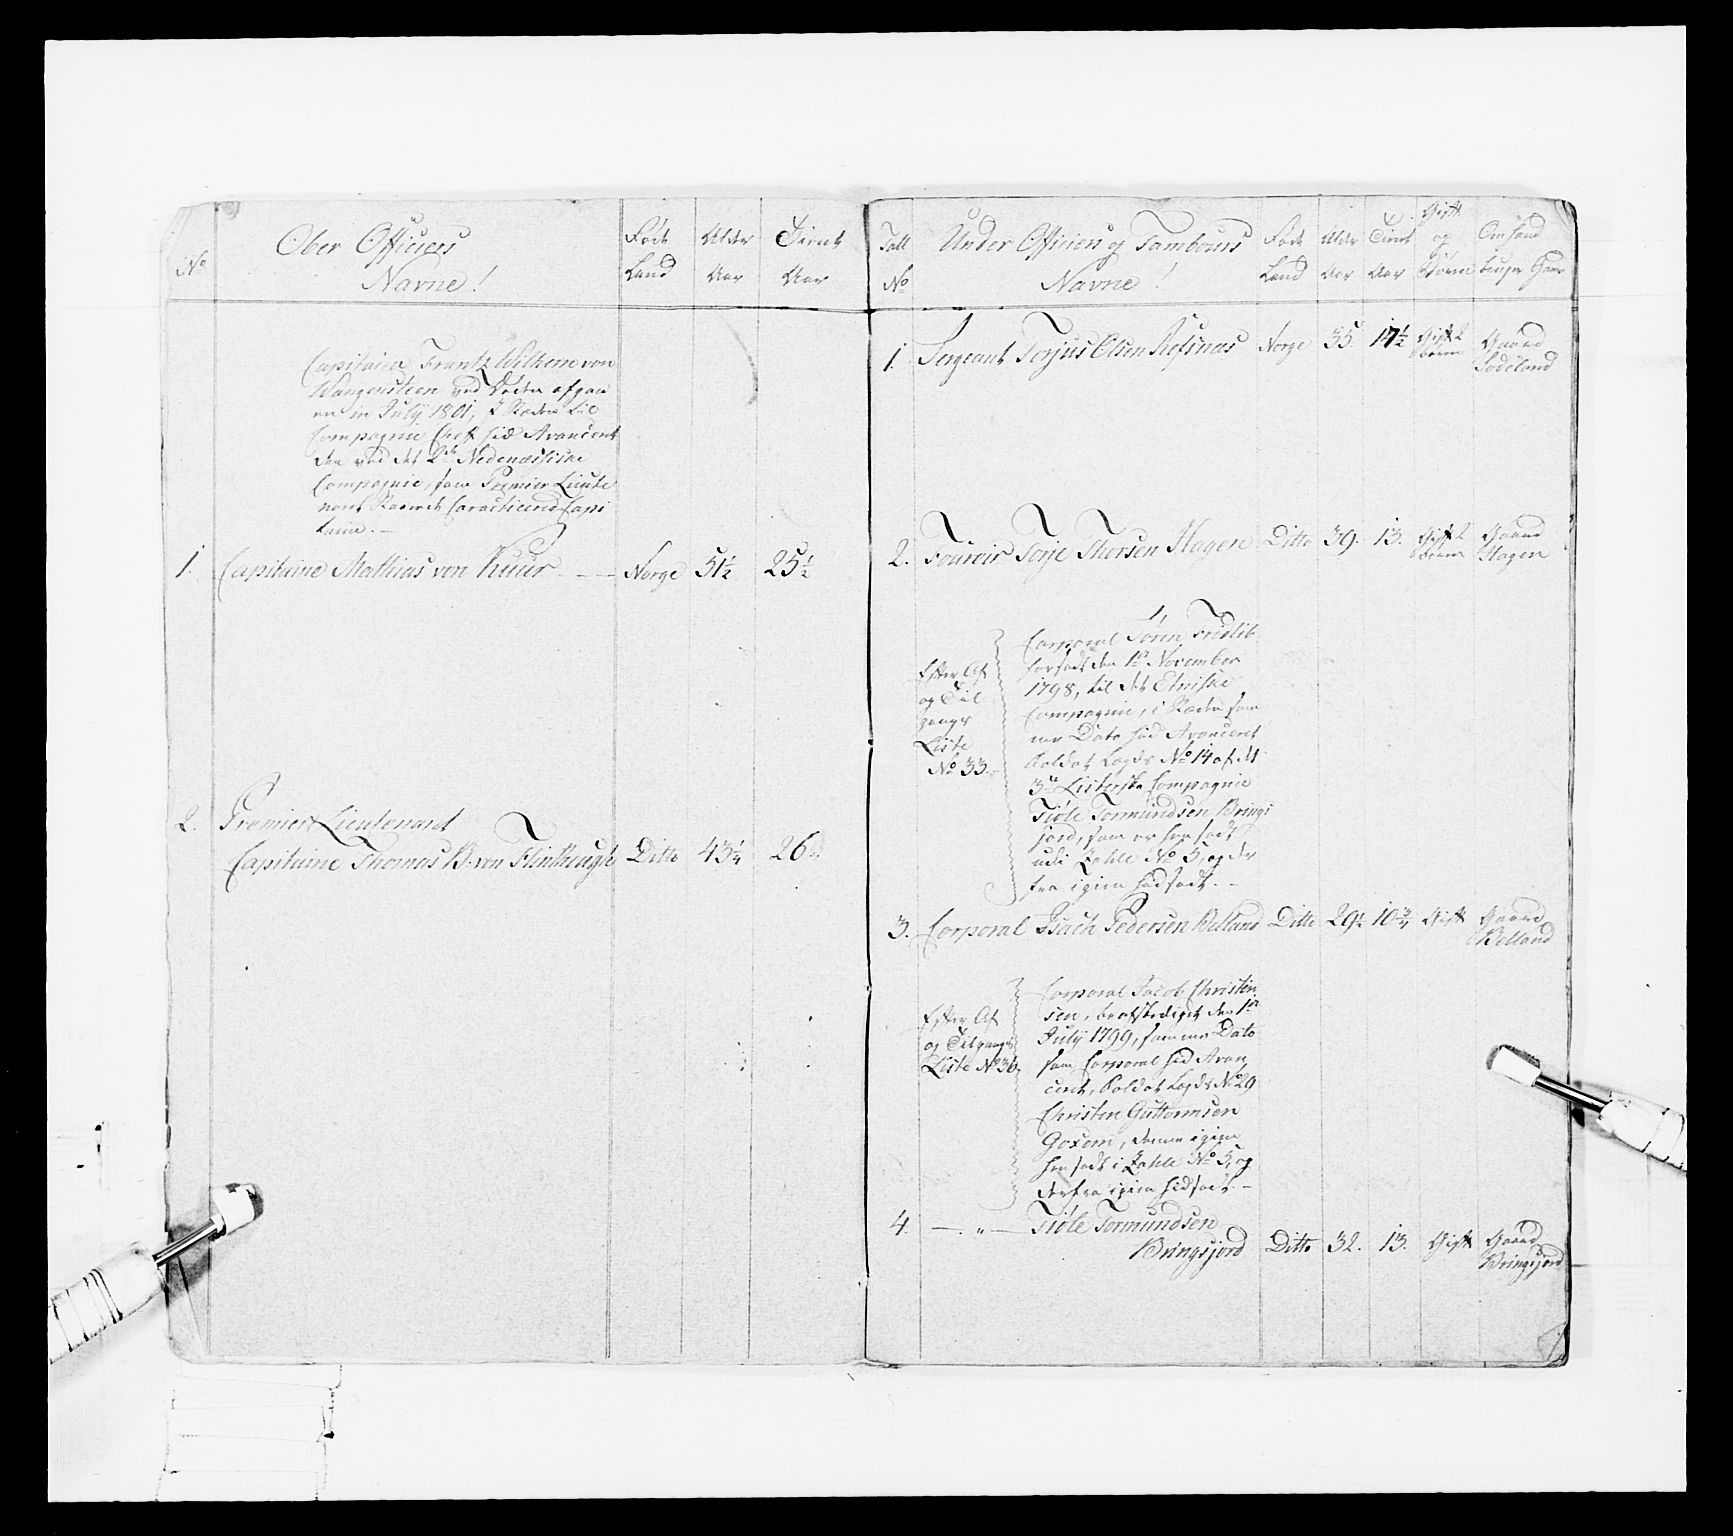 No
Ober Officiers
Navne!
Føde
Land
Alder
Aar
Tient
Aar
Capitaine Frantz Wilhem von
Wangensteen ved Døden afgaa
en in July 1801, i Stæden
Compagnie Chef hid Avancert
den ved det 2det Nedenæssiske
Compagnie, som Premier Lieute
nant Caracteriired Capi
taine. —
1. Capitaine Mathias von Kuur — — Norge 51½ 25½
2. Premier Lieutenant
Capitaine Thomas B: von Flinthaugh Ditto 43¼ 26.
Tall
No
Under Officiers og Tambours
Navne!
Føde
Land
Alder
Aar
Tient
Aar
Gift
og
Børn
Om hand
bruger Gaar
1. Sergeant Torjus Olsen Refsnæs Norge 35. 17½ Gift 2 Gaard
børn Lødeland
2. Foureir Terje Thorsen Hagen Ditto 39. 13. Gift 2 Gaard
børn Hagen
Efter Af
og Til
gangs
Liste
No 33.
Corporal Søren Fridlib
forsadt den 1ste November
1798, til det Etniske
Compagnie, i Stæden sam
me Dato hid Avanceret
Soldat Lægds No 14 af
3die Listerske Compagnie
Tiøle Tormundsen Brings
jord, som er hen sadt
udi Tahle No 5, og der
fra igien hidsadt. —
3. Corporal Isach Pedersen Belland Ditto 29½ 10¾ Gift Gaard
Belland
Efter Af
og Tilgangs
Liste No 36.
Corporal Jacob Christen
sen, beafskediget den 1ste
July 1799, samme Dato
som Corporal hid Avan
ceret, Soldat Lægds No 29
Christen Guttormsen
Gosem, denne igien
hensadt i Tahle No 5, og
derfra igien hidsadt. —
4. — „ — Tiøle Tormundsen
Bringsjord Ditto 32. 13. Gift Gaard
Bringsjord